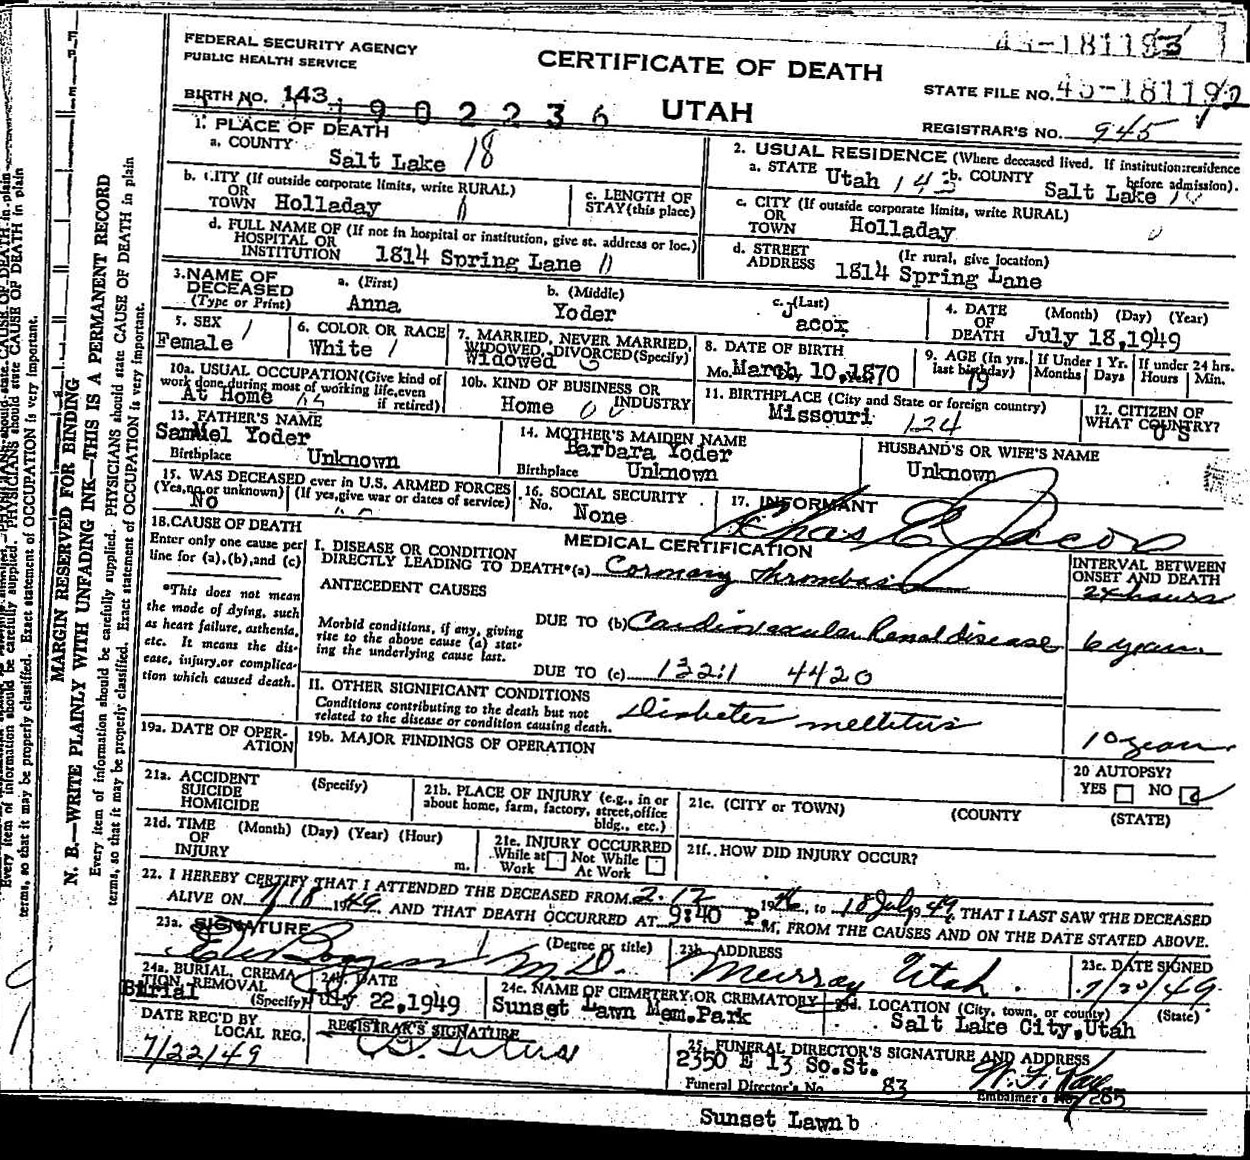 FEDERAL SECURITY AGENCY
PUBLIC HEALTH SERVICE
CERTIFICATE OF DEATH
UTAH
BIRTH NO. 143 1902236
STATE FILE NO.
REGISTRAR'S NO. 945
1. PLACE OF DEATH
a. COUNTY Salt Lake 18
b. CITY (If outside corporate limits, write RURAL)
OR
TOWN Holladay
c. LENGTH OF
STAY (this place)
d. FULL NAME OF (If not in hospital or institution, give st. address or loc.)
HOSPITAL OR
INSTITUTION 1814 Spring Lane
2. USUAL RESIDENCE (Where deceased lived. If institution:residence
before admission).
a. STATE Utah b. COUNTY Salt Lake
c. CITY (If outside corporate limits, write RURAL)
OR
TOWN Holladay
d. STREET (If rural, give location)
ADDRESS 1814 Spring Lane
3. NAME OF
DECEASED
(Type or Print)
a. (First) Anna
b. (Middle) Yoder
c. (Last) Jacox
4. DATE (Month) (Day) (Year)
OF
DEATH July 18,1949
5. SEX
Female
6. COLOR OR RACE
White
7. MARRIED, NEVER MARRIED,
WIDOWED, DIVORCED (Specify)
Widowed
8. DATE OF BIRTH
Mo. March Day 10, Year 1870
9. AGE (In yrs.
last birthday) 79
If Under 1 Yr.
Months Days
If under 24 hrs.
Hours Min.
10a. USUAL OCCUPATION (Give kind of
work done during most of working life, even
if retired)
At Home
10b. KIND OF BUSINESS OR
INDUSTRY
Home
11. BIRTHPLACE (City and State or foreign country)
Missouri 124
12. CITIZEN OF
WHAT COUNTRY?
U S
13. FATHER'S NAME
Samuel Yoder
Birthplace Unknown
14. MOTHER'S MAIDEN NAME
Barbara Yoder
Birthplace Unknown
HUSBAND'S OR WIFE'S NAME
Unknown
15. WAS DECEASED ever in U.S. ARMED FORCES
(Yes, no, or unknown) (If yes, give war or dates of service)
No
16. SOCIAL SECURITY
No. None
17. INFORMANT
Chas E Jacox
18. CAUSE OF DEATH
Enter only one cause per
line for (a), (b), and (c)
*This does not mean
the mode of dying, such
as heart failure, asthenia,
etc. It means the dis-
ease, injury, or complica-
tion which caused death.
MEDICAL CERTIFICATION
I. DISEASE OR CONDITION
DIRECTLY LEADING TO DEATH*(a) Coronary thrombosis
ANTECEDENT CAUSES
Morbid conditions, if any, giving
rise to the above cause (a) stat-
ing the underlying cause last.
DUE TO (b) Cardiovascular Renal disease
DUE TO (c) 4420
INTERVAL BETWEEN
ONSET AND DEATH
24 hours
6 years
II. OTHER SIGNIFICANT CONDITIONS
Conditions contributing to the death but not
related to the disease or condition causing death.
Diabetes mellitus
10 years
19a. DATE OF OPER-
ATION
19b. MAJOR FINDINGS OF OPERATION
20 AUTOPSY?
YES NO
21a. ACCIDENT (Specify)
SUICIDE
HOMICIDE
21b. PLACE OF INJURY (e.g., in or
about home, farm, factory, street, office
bldg., etc.)
21c. (CITY or TOWN) (COUNTY (STATE)
21d. TIME (Month) (Day) (Year) (Hour)
OF
INJURY m.
21e. INJURY OCCURRED
While at Not While
Work At Work
21f. HOW DID INJURY OCCUR?
22. I HEREBY CERTIFY THAT I ATTENDED THE DECEASED FROM 2-12 1946, to 18 July 1949, THAT I LAST SAW THE DECEASED
ALIVE ON 7/18 1949, AND THAT DEATH OCCURRED AT 9:40 P.M, FROM THE CAUSES AND ON THE DATE STATED ABOVE.
23a. SIGNATURE (Degree or title)
M D.
23b. ADDRESS
Murray Utah.
23c. DATE SIGNED
7/20/49
24a. BURIAL, CREMA
TION, REMOVAL
(Specify)
Burial
24b. DATE
July 22,1949
24c. NAME OF CEMETERY OR CREMATORY
Sunset Lawn Mem.Park
24d. LOCATION (City, town, or county) (State)
Salt Lake City,Utah
DATE REC'D BY
LOCAL REG.
7/22/49
REGISTRAR'S SIGNATURE
25. FUNERAL DIRECTOR'S SIGNATURE AND ADDRESS
2350 E 13 So.St.
Funeral Director's No. 83
Embalmer's No. 265
Sunset Lawn b
MARGIN RESERVED FOR BINDING
N. B.—WRITE PLAINLY WITH UNFADING INK—THIS IS A PERMANENT RECORD
Every item of information should be carefully supplied. PHYSICIANS should state CAUSE OF DEATH in plain
terms, so that it may be properly classified. Exact statement of OCCUPATION is very important.